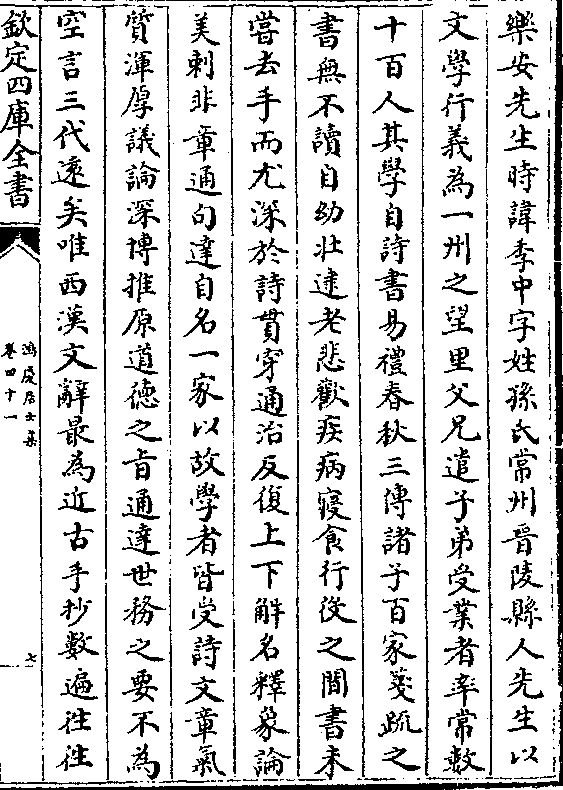 樂安先生時諱季中字姓孫氏常州晉陵縣人先生以
文學行義為一州之望里父兄遣子弟受業者率常數
十百人其學自詩書易禮春秋三傳諸子百家箋疏之
書無不讀自幼壯逮老悲歡疾病寢食行役之間書未
嘗去手而尤深於詩貫穿通治反復上下解名釋象論
美刺非章通句達自名一家以故學者皆受詩文章氣
質渾厚議論深博推原道德之旨通達世務之要不為
空言三代逺矣唯西漢文辭最為近古手抄數遍徃徃
欽定四庫全書
鴻慶居士集
卷四十一
七